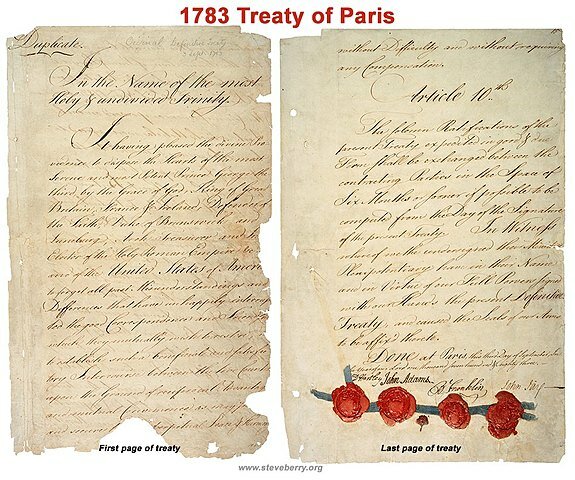 1783 Treaty of Paris
Duplicate.
Original Definitive Treaty
In the Name of the most
Holy & undivided Trinity.
It having pleased the divine Pro
vidence to dispose the Hearts of the most
serene and most Potent Prince George the
third, by the Grace of God, King of Great
Britain, France & Ireland, Defender of
the Faith, Duke of Brunswick and
Arch Treasurer, and
Elector of the Holy Roman Empire
and of the United States of Ameri
to forget all past Misunderstandings and
Differences that have unhappily interrup
ted the good Correspondence and
which they mutually wish to restore;
to establish such a beneficial and
Intercourse between the two
upon the Ground of reciprocal
and mutual Convenience as may
and secure to both perpetual Peace & Harmony
First page of treaty
without Difficulty and without requiring
any Compensation.
Article 10th
The solemn Ratifications of the
present Treaty expedited in good & due
Form shall be exchanged between the
contracting Parties in the Space of
Six Months or sooner if possible to be
computed from the Day of the Signature
of the present Treaty. In Witness
whereof we the undersigned their Ministers
Plenipotentiary have in their Name
and in Virtue of our Full Powers signed
with our Hands the present Definitive
Treaty, and caused the Seals of our Arms
to be affix'd thereto.
Done at Paris, this third day of September
In the Year of our Lord, one thousand seven hundred & eighty three.
D Hartley John Adams. B Franklin John Jay
Last page of treaty
www.steveberry.org